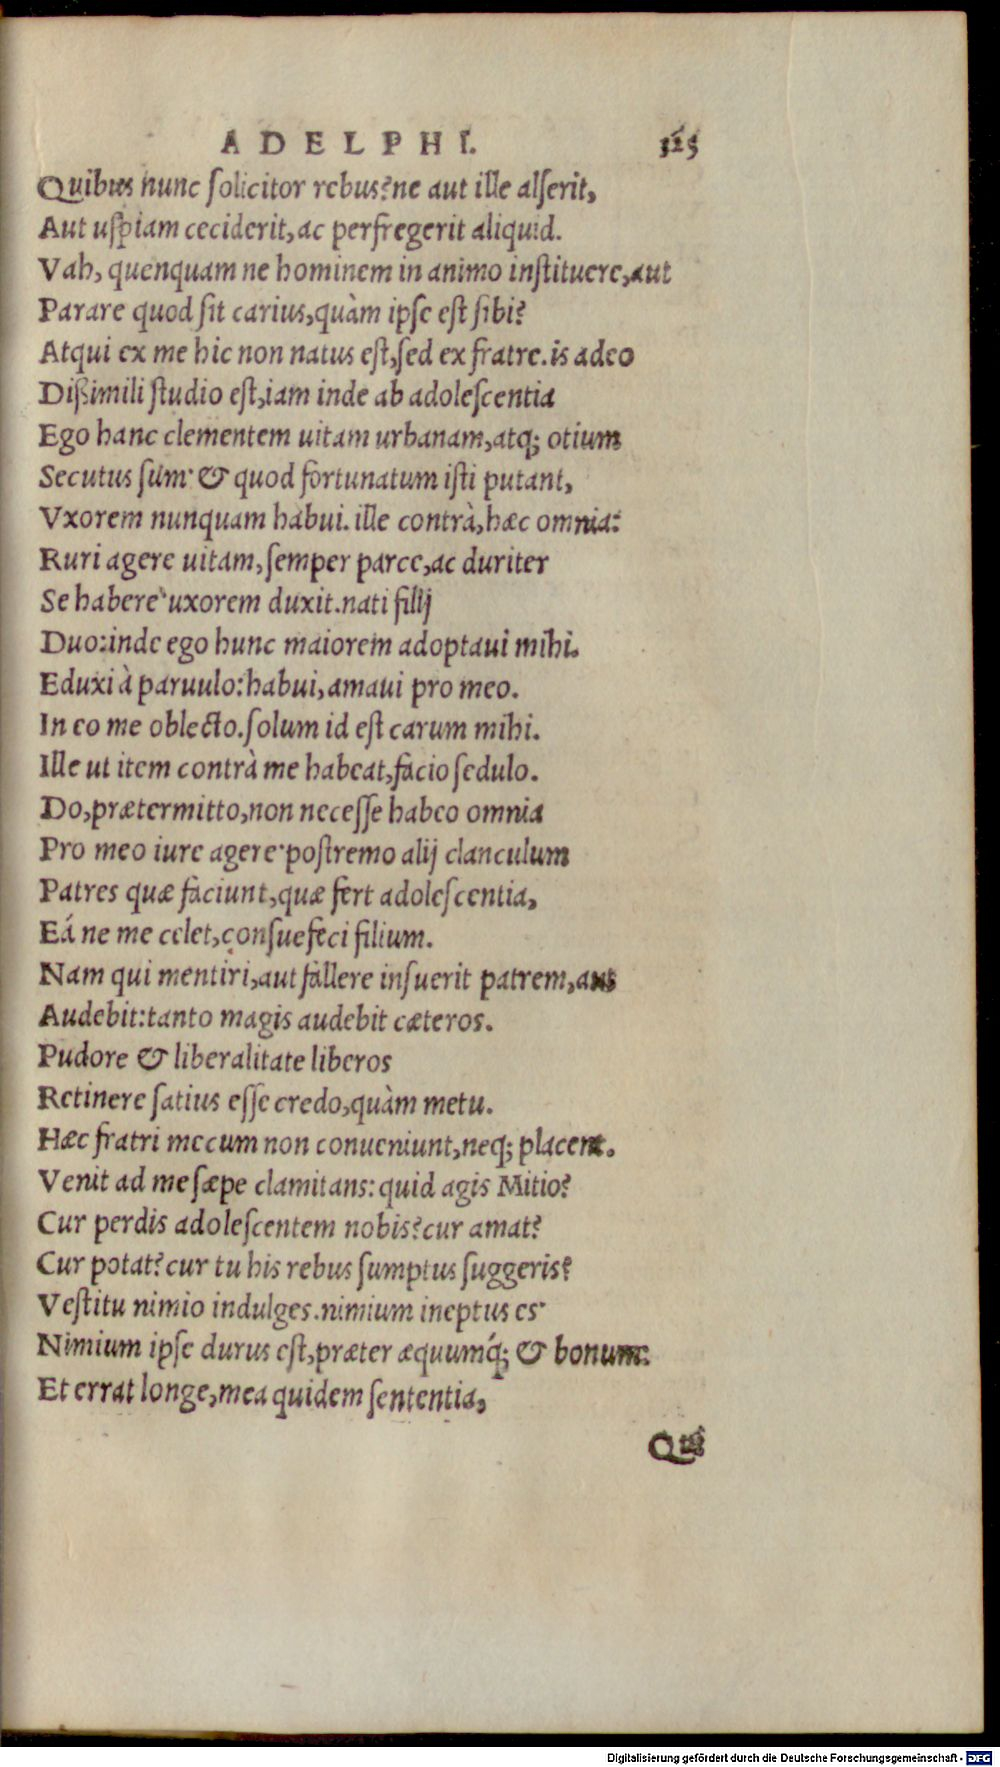 ADELPHI. 325
Quibus nunc ſolicitor rebus? ne aut ille alſerit,
Aut uſpiam ceciderit, ac perfregerit aliquid.
Vah, quenquam ne hominem in animo inſtituere, aut
Parare quod ſit carius, quàm ipſe eſt ſibi?
Atqui ex me hic non natus eſt, ſed ex fratre. is adeo
Dißimili ſtudio eſt, iam inde ab adoleſcentia
Ego hanc clementem uitam urbanam, atq; otium
Secutus ſum: & quod fortunatum iſti putant,
Vxorem nunquam habui. ille contrà, hæc omnia:
Ruri agere uitam, ſemper parce, ac duriter
Se habere: uxorem duxit. nati filij
Duo: inde ego hunc maiorem adoptaui mihi.
Eduxi à paruulo: habui, amaui pro meo.
In eo me oblecto. ſolum id eſt carum mihi.
Ille ut item contrà me habeat, facio ſedulo.
Do, prætermitto, non neceſſe habeo omnia
Pro meo iure agere: poſtremo alij clanculum
Patres quæ faciunt, quæ fert adoleſcentia,
Eá ne me celet, conſuefeci filium.
Nam qui mentiri, aut fallere inſuerit patrem, aut
Audebit: tanto magis audebit cæteros.
Pudore & liberalitate liberos
Retinere ſatius eſſe credo, quàm metu.
Hæc fratri mecum non conueniunt, neq; placent.
Venit ad me ſæpe clamitans: quid agis Mitio?
Cur perdis adoleſcentem nobis? cur amat?
Cur potat? cur tu his rebus ſumptus ſuggeris?
Veſtitu nimio indulges. nimium ineptus es:
Nimium ipſe durus eſt, præter æquumq́; & bonum:
Et errat longe, mea quidem ſententia,
Digitalisierung gefördert durch die Deutsche Forschungsgemeinschaft - DFG